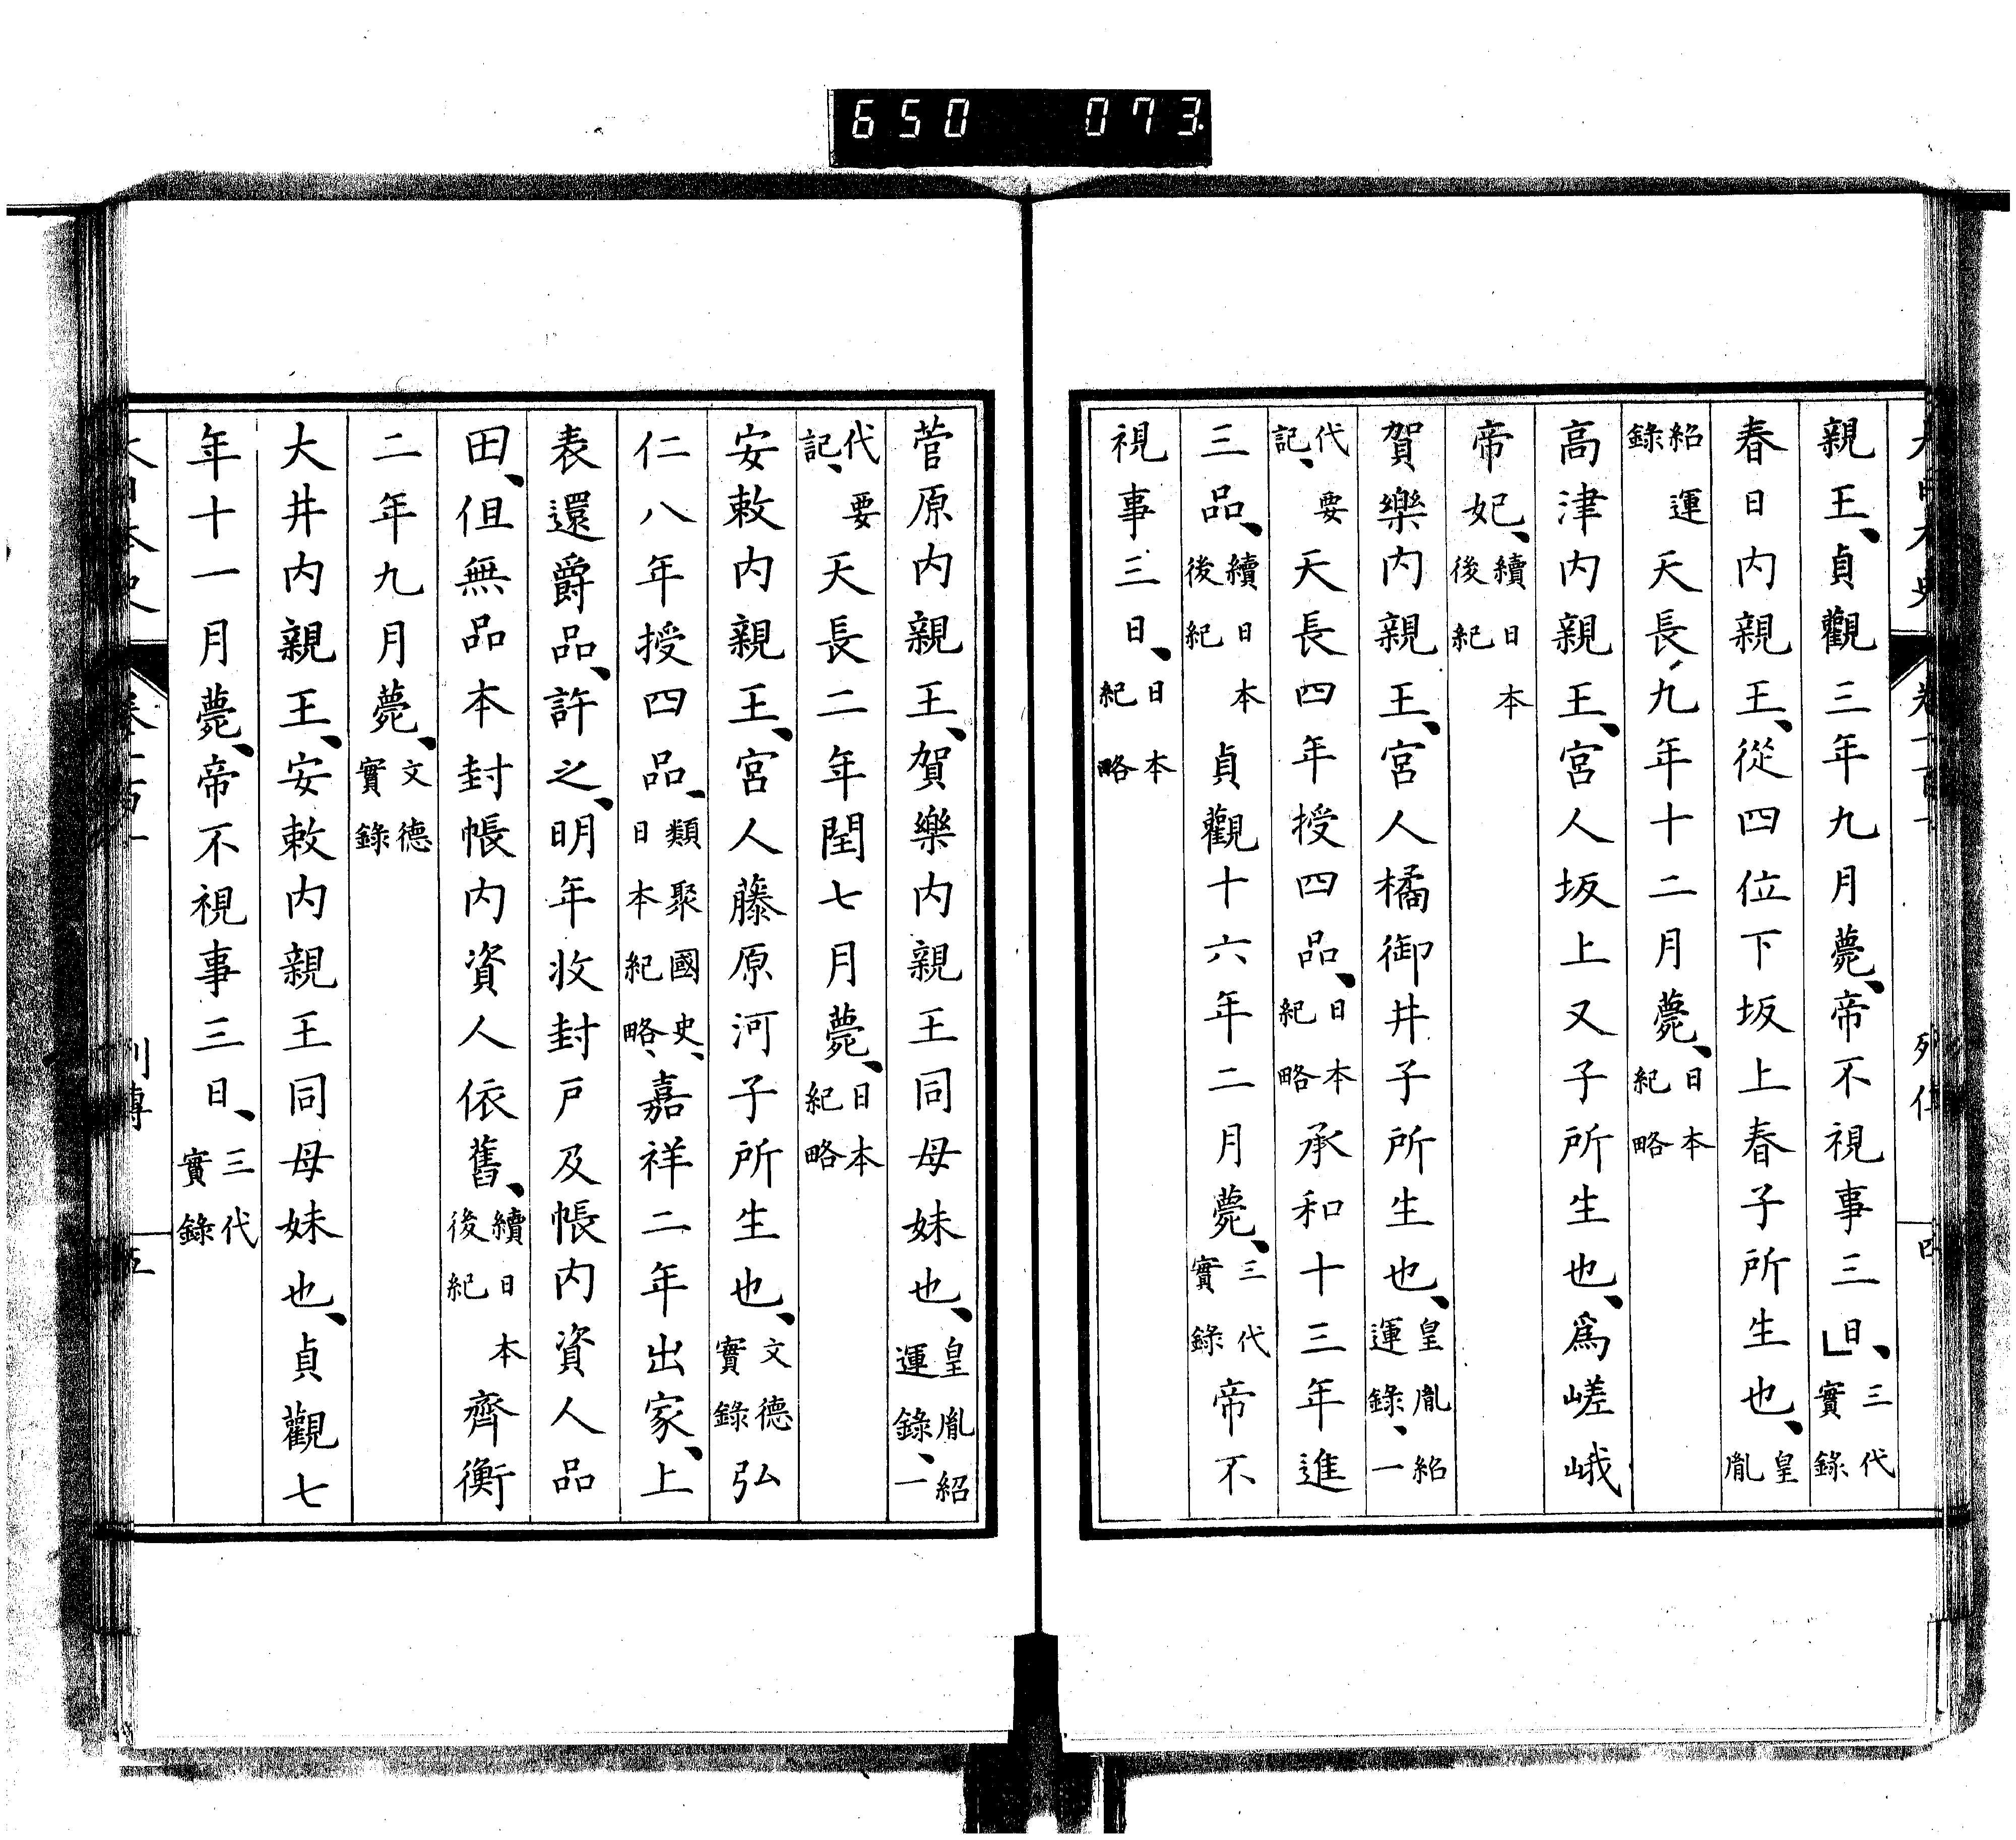 650 073
親王、貞觀三年九月薨、帝不視事三日、三代實錄
春日内親王、從四位下坂上春子所生也、皇胤
紹運錄天長九年十二月薨、日本紀略
高津内親王、宮人坂上又子所生也、爲嵯峨
帝妃、續日本後紀
賀樂内親王、宮人橘御井子所生也、皇胤紹運錄、一
代要記、天長四年授四品、日本紀略承和十三年進
三品、續日本後紀貞觀十六年二月薨、三代實錄帝不
視事三日、日本紀略
菅原内親王、賀樂内親王同母妹也、皇胤紹運錄、一
代要記、天長二年閏七月薨、日本紀略
安敕内親王、宮人藤原河子所生也、文德實錄弘
仁八年授四品、類聚國史、日本紀略、嘉祥二年出家、上
表還爵品、許之、明年收封戸及帳内資人品
田、但無品本封帳内資人依舊、續日本後紀齊衡
二年九月薨、文德實錄
大井内親王、安敕内親王同母妹也、貞觀七
年十一月薨、帝不視事三日、三代實錄